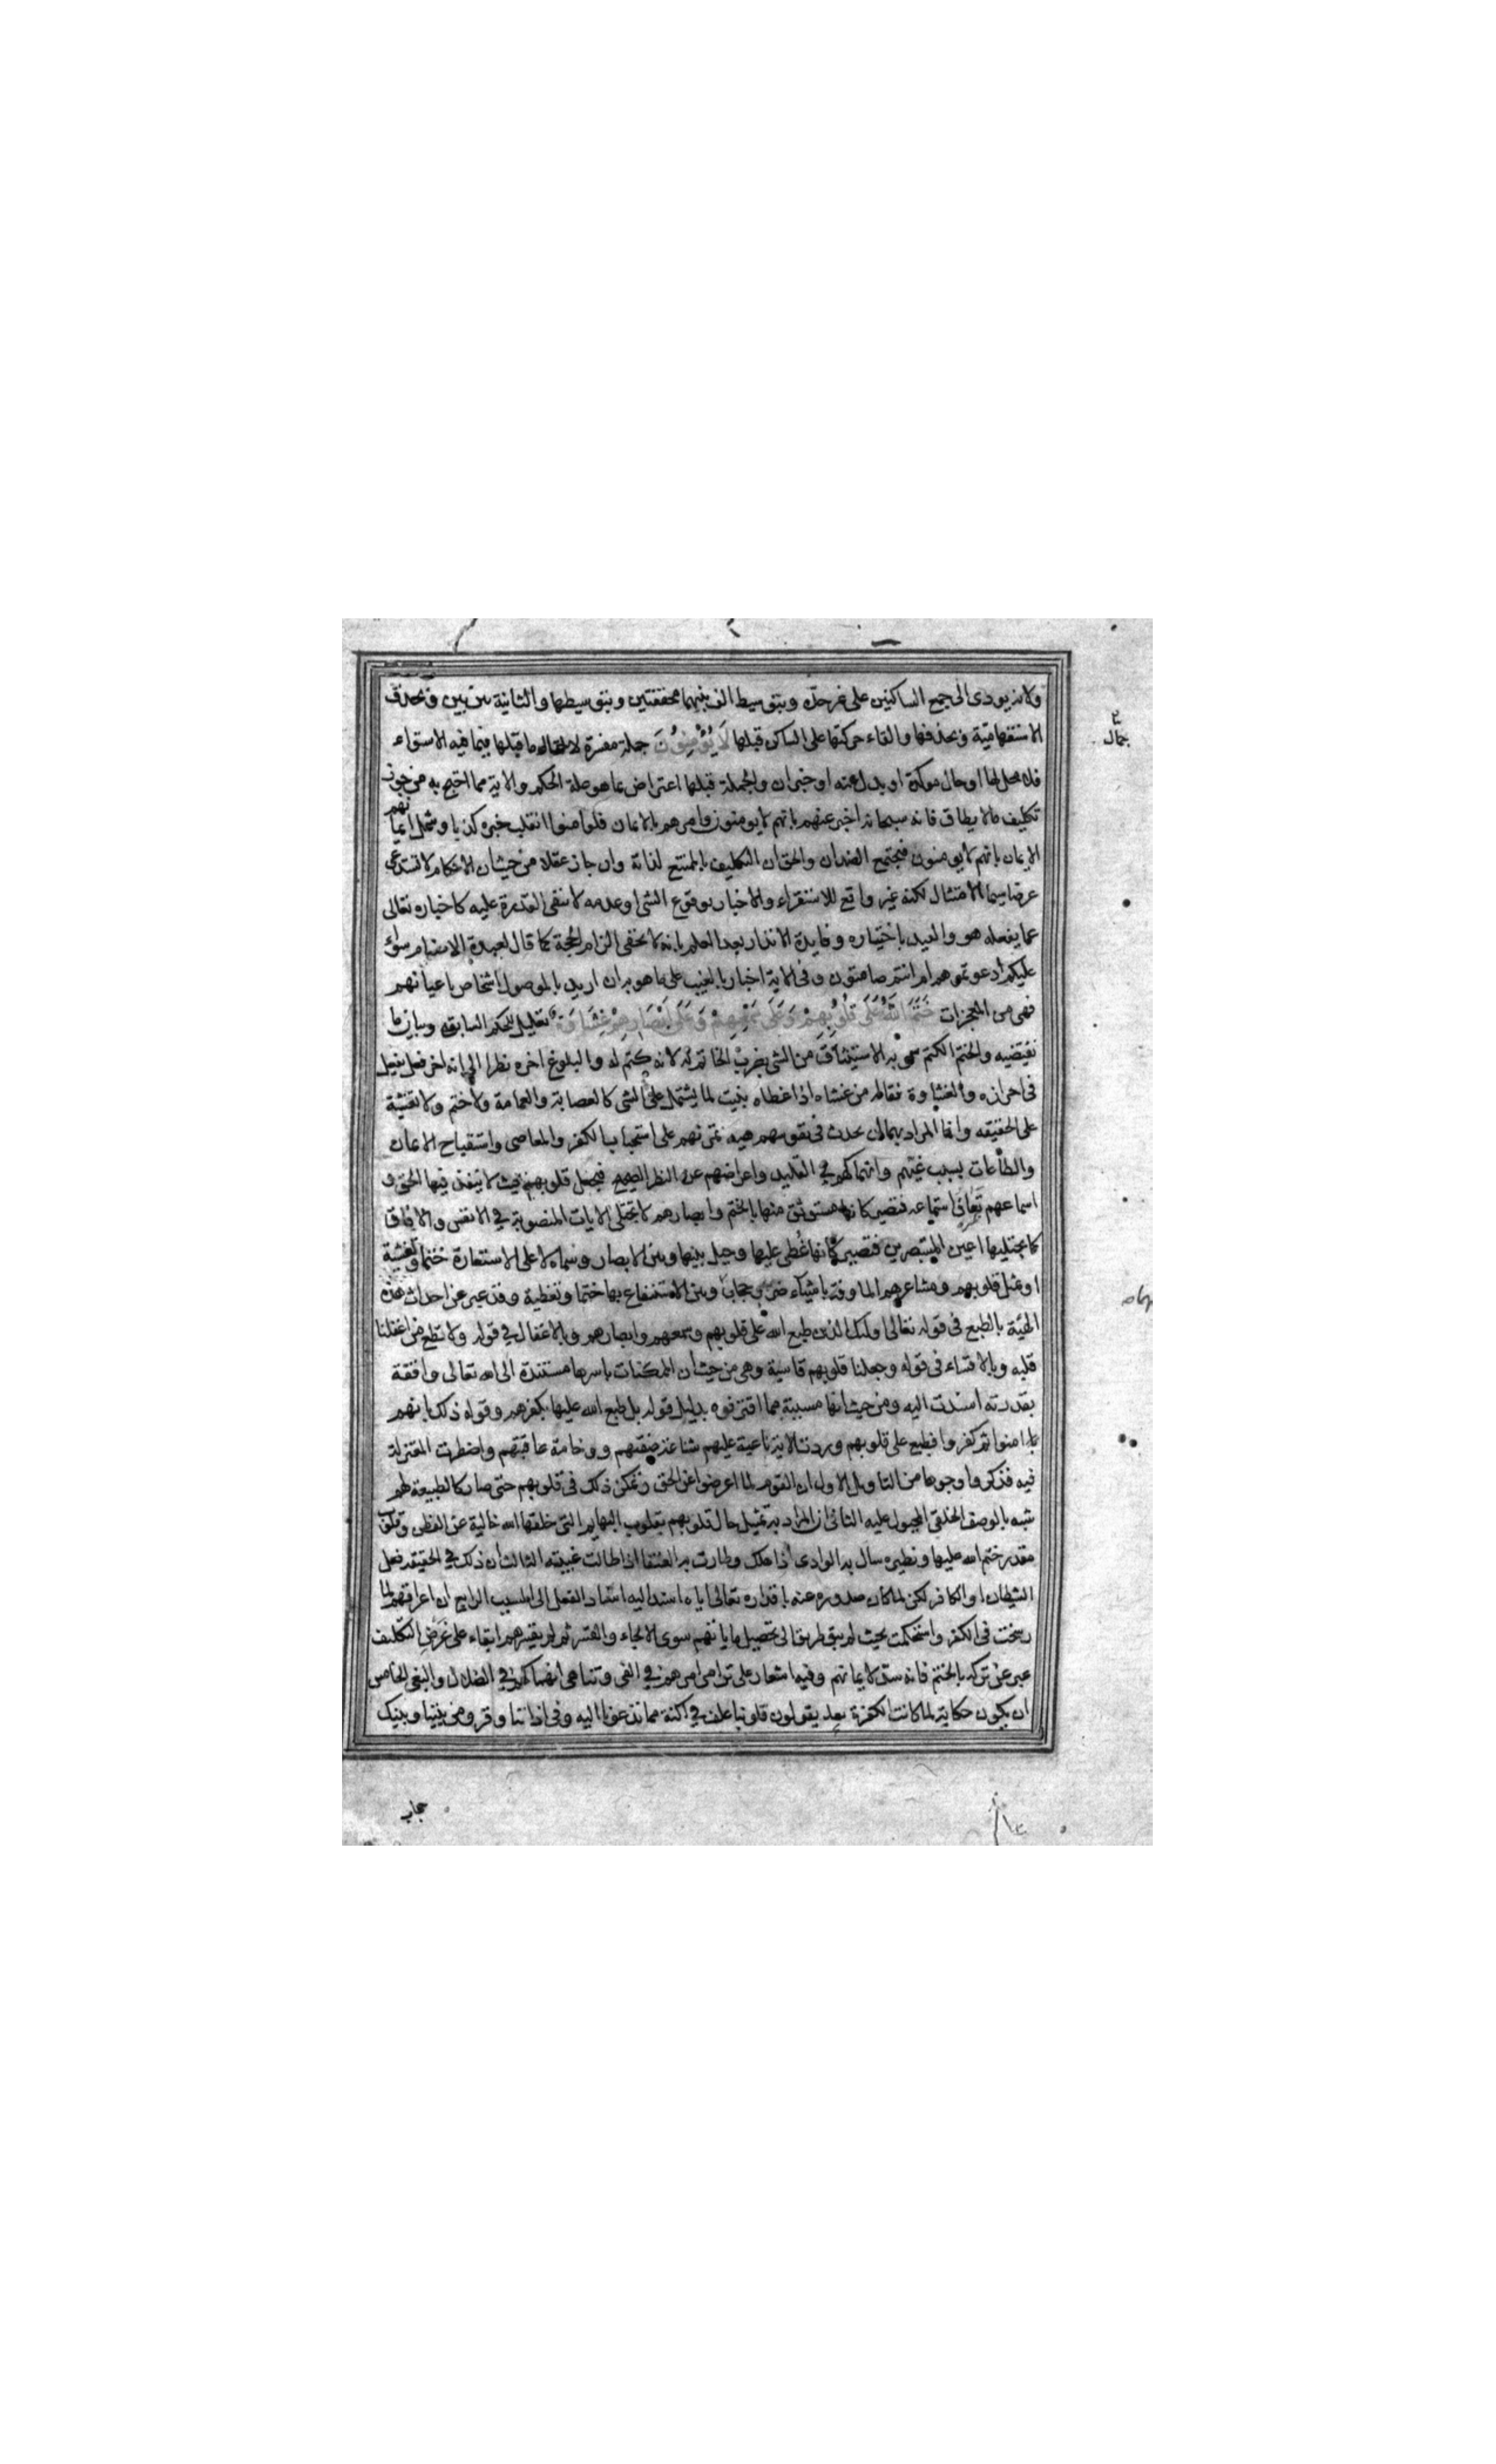 ولانه يودى الى جمع الساكنين على غير حده وبتوسيط الف بينهما محققتين وبتوسيطها والثانية بين بين وبحذف
الاستفهامية وبحذفها والقاء حركتها على الساكن قبلها لَا يُؤْمِنُونَ جملة مفسرة لاجمال ما قبلها فيما فيه الاستواء
فلا محل لها او حال موكدة او بدل عنه او خبر ان والجملة قبلها اعتراض بما هو علة الحكم والاية مما احتج به من جوز
تكليف ما لا يطاق فانه سبحانه اخبر عنهم بانهم لا يومنون وامرهم بالايمان فلو امنوا انقلب خبره كذبا وشمل ايمانهم
الايمان بانهم لا يومنون فيجتمع الضدان والحق ان التكليف بالممتنع لذاته وان جاز عقلا من حيث ان الاحكام لا تستدعى
غرضا سيما الامتثال لكنه غير واقع للاستقراء والاخبار بوقوع الشى او عدمه لا ينفى القدرة عليه كاخباره تعالى
عما يفعله هو والعبد باختياره وفايدة الانذار بعد العلم بانه لا الزام الحجة كما قال لعبدة الاصنام سواء
عليكم ادعوتموهم ام انتم صامتون وفى الاية اخبار بالغيب على ما هو به ان اريد بالموصول اشخاص باعيانهم
فهى من المعجزات خَتَمَ اللَّهُ عَلَى قُلُوبِهِمْ وَعَلَى سَمْعِهِمْ وَعَلَى أَبْصَارِهِمْ غِشَاوَةٌ تعليل للحكم السابق وبيان ما
يقتضيه والختم الكتم سمى به الاستيثاق من الشى بضرب الخاتم عليه لانه كتم له والبلوغ اخره نظرا الى انه اخر فعل يفعل
فى احرازه والغشاوة فعالة من غشاه اذا غطاه بنيت لما يشتمل على الشى كالعصابة والعمامة ولا ختم ولا تغشية
على الحقيقه وانما المراد بهما ان يحدث فى نفوسهم هيه تمرنهم على استحباب الكفر والمعاصى واستقباح الايمان
والطاعات بسبب غيهم وانهماكهم فى التقليد واعراضهم عن النظر الصحيح فيجعل قلوبهم بحيث لا ينفذ فيها الحق و
اسماعهم تعاف استماعه فتصير كانها مستوثق منها بالختم وابصارهم لا تجتلى الايات المنصوبة فى الانفس والافاق
كما يجتليها اعين المستبصرين فتصير كانها غطى عليها وحيل بينها وبين الابصار وسماه على الاستعارة ختما وتغشية
او مثل قلوبهم ومشاعرهم الماوفة باشياء ضرب حجاب وبين الاستنفاع بها ختما وتغطية وقد عبر عن احداث هذه
الهيئة بالطبع فى قوله تعالى اولئك الذين طبع الله على قلوبهم وسمعهم وابصارهم وبالاغفال فى قوله ولا تطع من اغفلنا
قلبه وبالاقساء فى قوله وجعلنا قلوبهم قاسية وهى من حيث ان الممكنات باسرها مستندة الى الله تعالى واقعة
بقدرته اسندت اليه ومن حيث انها مسببة مما اقترفوه بدليل قوله بل طبع الله عليها بكفرهم وقوله ذلك بانهم
امنوا ثم كفروا فطبع على قلوبهم وردت الاية ناعية عليهم شناعة صفتهم ووخامة عاقبتهم واضطربت المعتزلة
فيه فذكروا وجوها من التاويل الاول ان القوم لما اعرضوا عن الحق وتمكن ذلك فى قلوبهم حتى صار كالطبيعة لهم
شبه بالوصف الخلقى المجبول عليه الثانى ان المراد به تمثيل حال قلوبهم بقلوب البهايم التى خلقها الله خالية عن الفطن وقلوب
مقدر ختم الله عليها ونظيره سال به الوادى اذا هلك وطارت به العنقا اذا طالت غيبته الثالث ان ذلك فى الحقيقة فعل
الشيطان او الكافر لكن لما كان صدوره عنه باقداره تعالى اياه اسند اليه اسناد الفعل الى المسبب الرابع ان اعراقهم لما
رسخت فى الكفر واستحكمت بحيث لم يبق طريق الى تحصيل ايمانهم سوى الالجاء والقسر ثم لم يقسرهم ابقاء على غرض التكليف
عبر عن تركه بالختم فانه سد لايمانهم وفيه اشعار على ترامى امرهم فى الغى وتناهى انهماكهم فى الضلال والبغى الخامس
ان يكون حكاية لما كانت الكفرة يقولون قلوبنا فى اكنة مما تدعونا اليه وفى اذاننا وقر ومن بيننا وبينك
حجاب